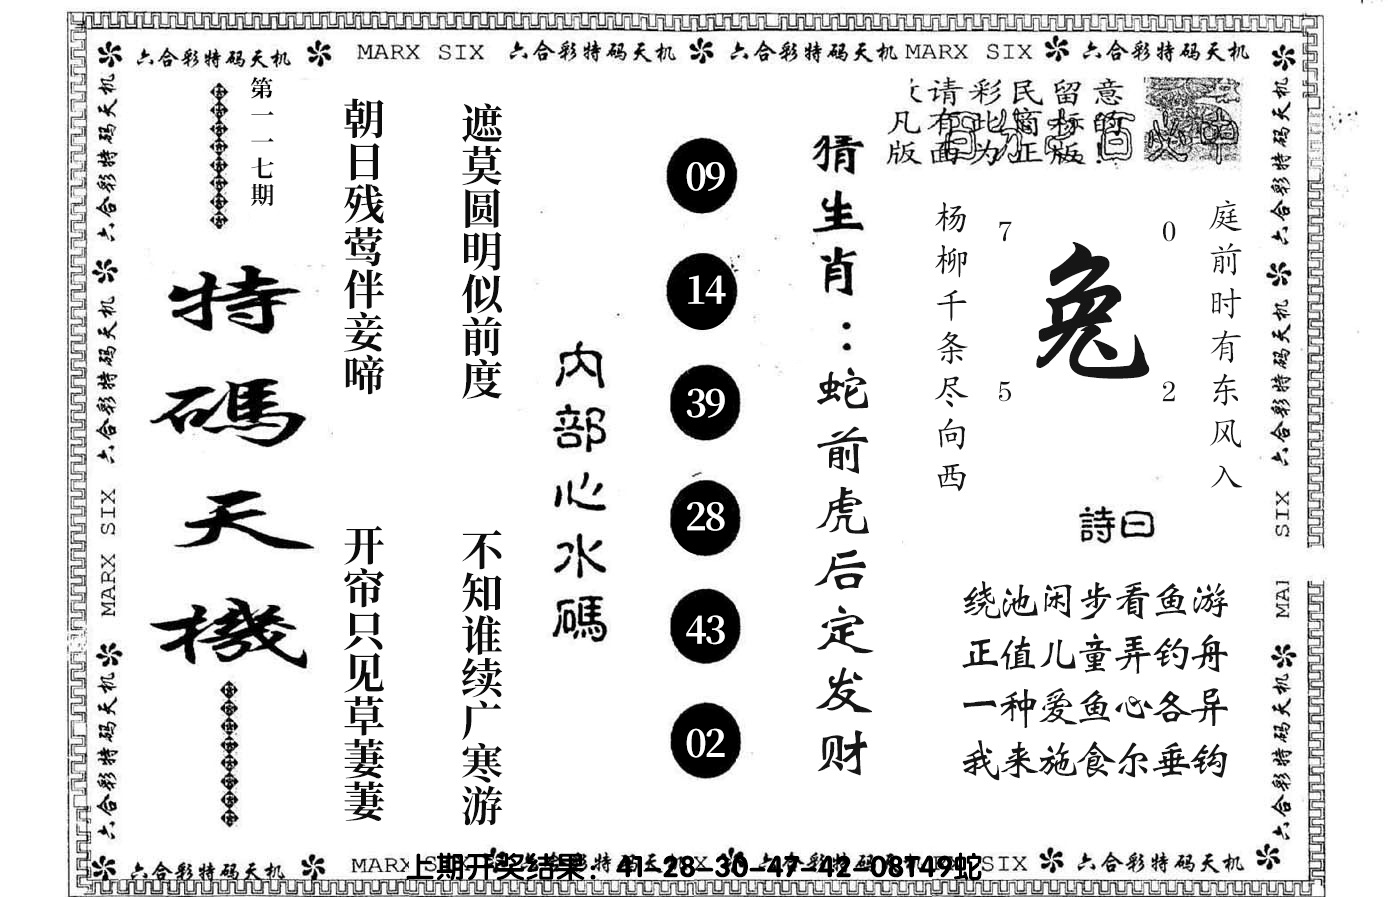 六合彩特码天机 MARX SIX 六合彩特码天机 六合彩特码天机 MARX SIX 六合彩特码天机
六合彩特码天机
六合彩特码天机
MARX SIX
六合彩特码天机
第一一七期
特碼天機
朝日残莺伴妾啼
开帘只见草萋萋
遮莫圆明似前度
不知谁续广寒游
内部心水碼
09
14
39
28
43
02
猜生肖：蛇前虎后定发财
请彩民留意
凡有此商标的
版面为正版!
杨柳千条尽向西
7
0
兔
5
2
庭前时有东风入
詩曰
绕池闲步看鱼游
正值儿童弄钓舟
一种爱鱼心各异
我来施食尔垂钩
六合彩特码天机
六合彩特码天机
SIX
MA
六合彩特码天机
六合彩特码天机 MARX SIX 六合彩特码天机
上期开奖结果：41-28-30-47-42-08T49蛇